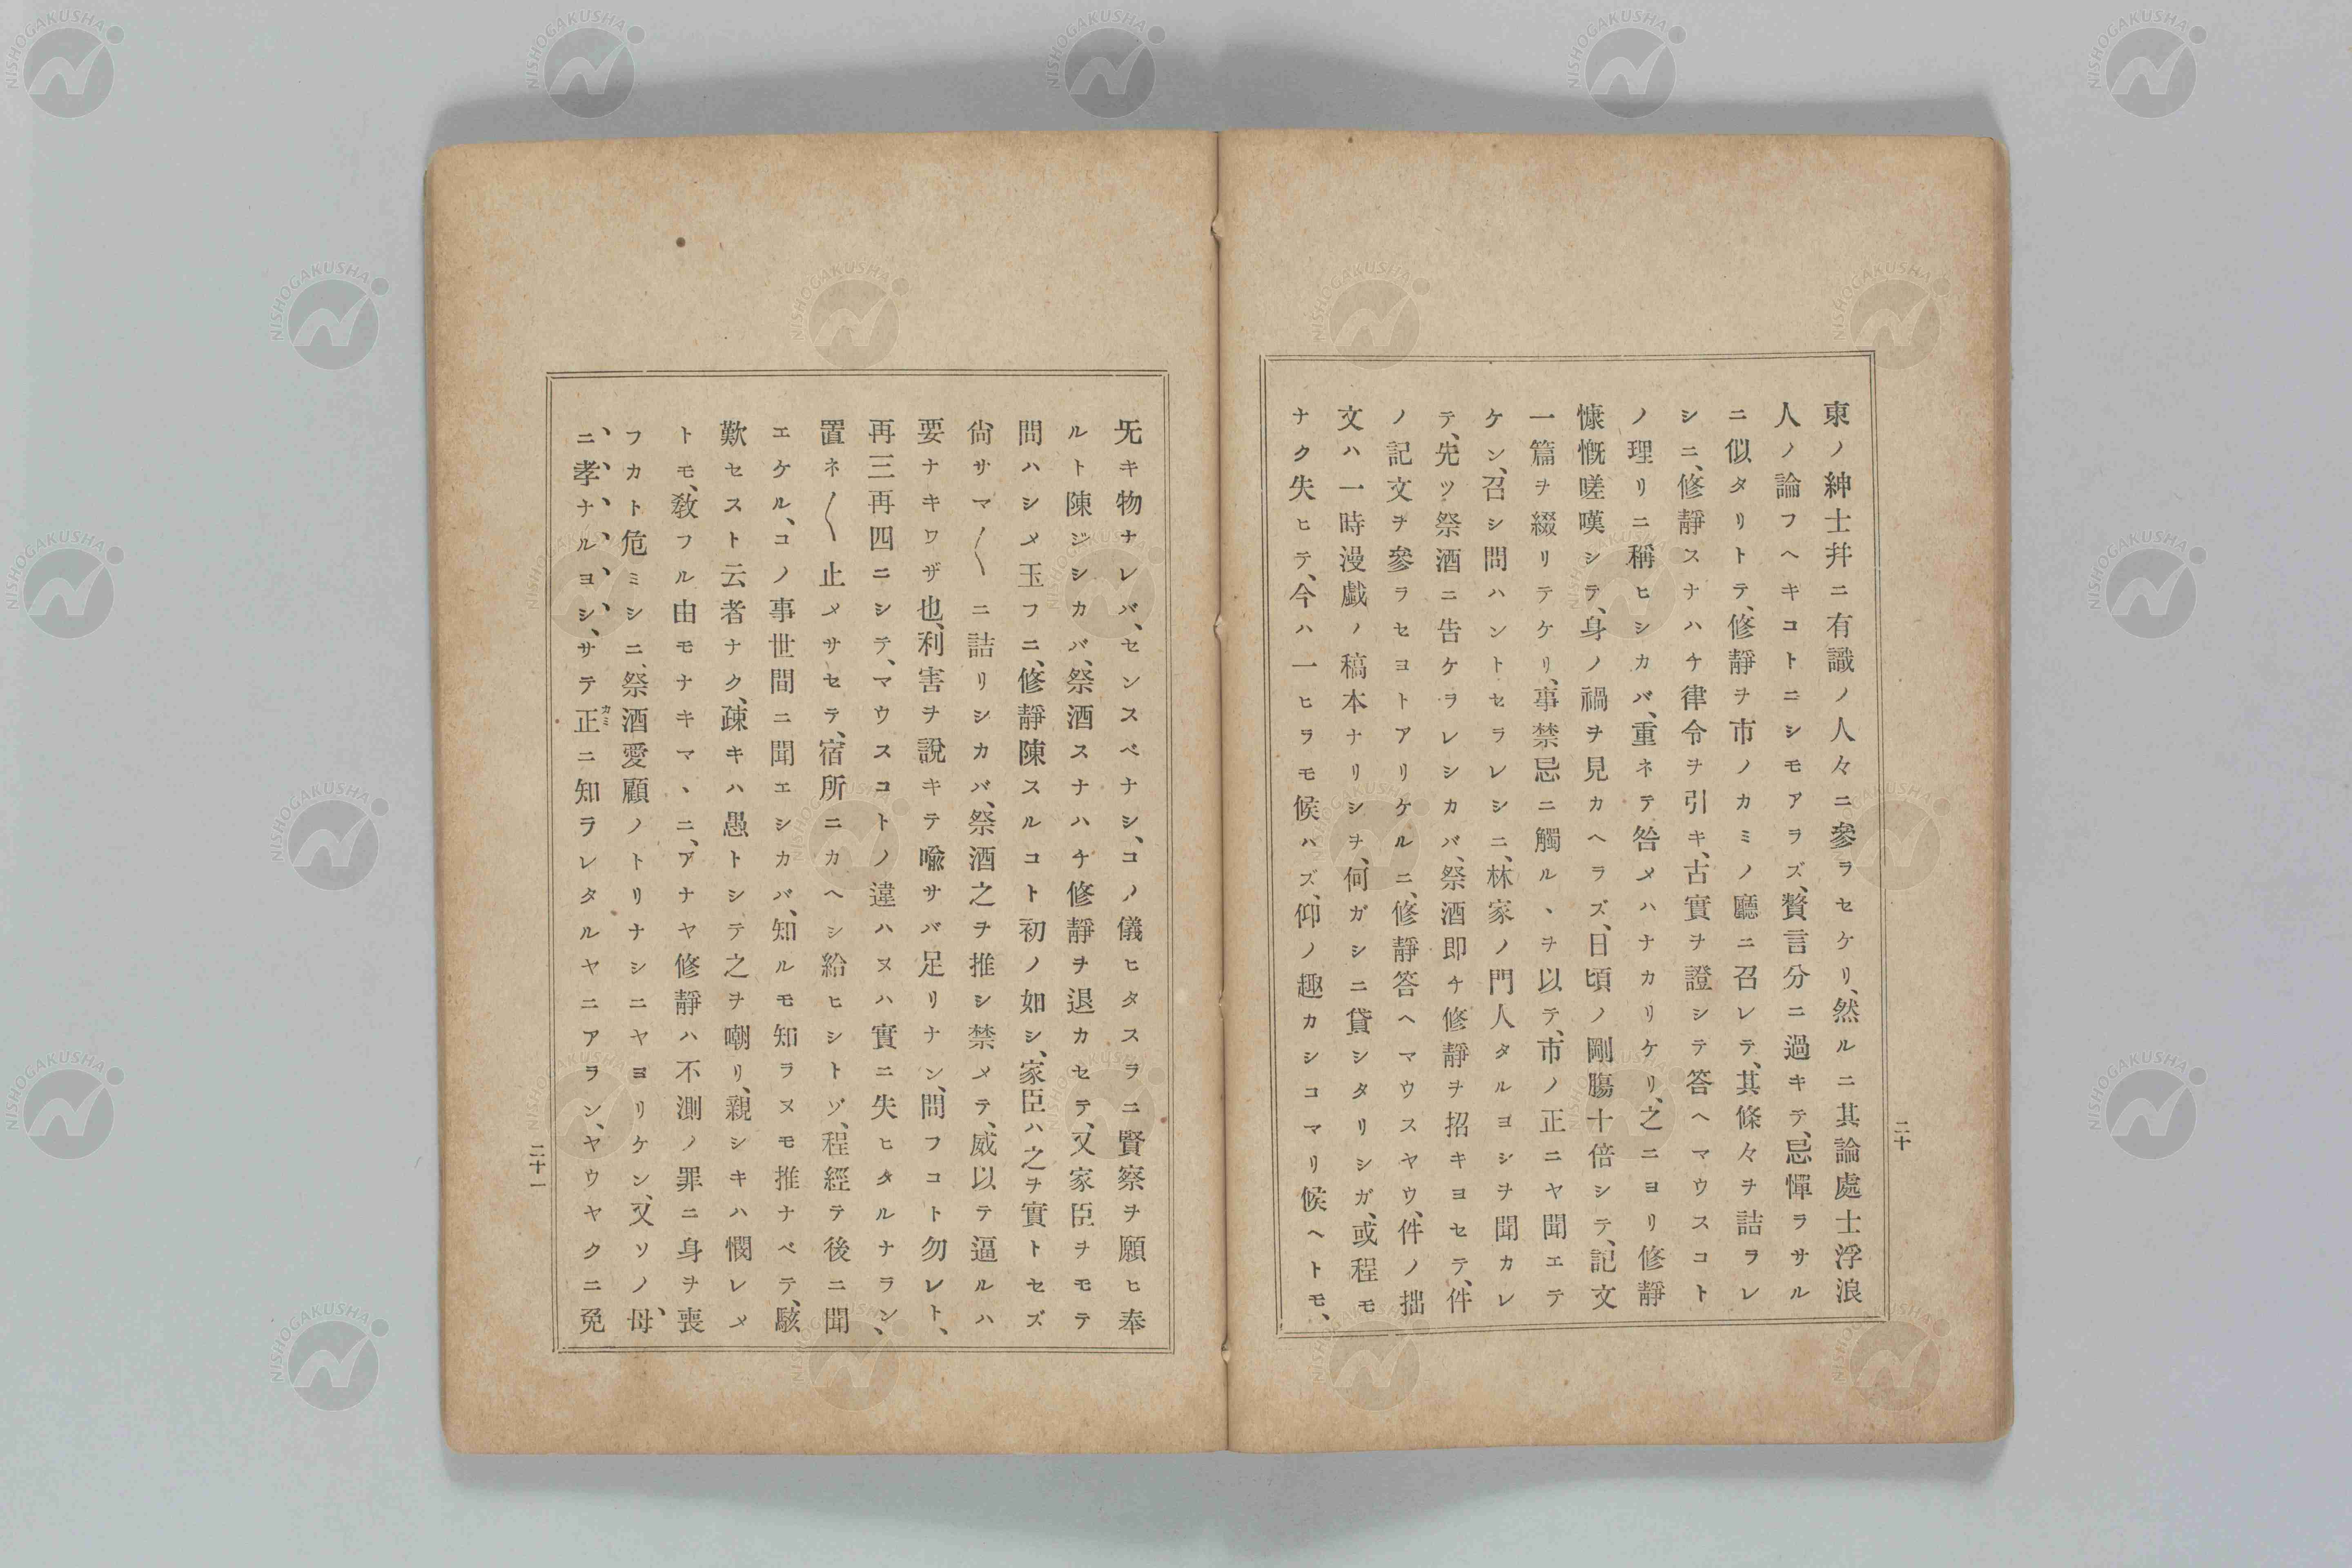 東ノ紳士幷ニ有識ノ人々ニ參ラセケリ、然ルニ其論處士浮浪
人ノ論フヘキコトニシモアラズ、贅言分ニ過キテ、忌憚ラサル
ニ似タリトテ、修靜ヲ市ノカミノ廳ニ召レテ、其條々ヲ詰ラレ
シニ、修靜スナハチ律令ヲ引キ、古實ヲ證シテ答ヘマウスコト
ノ理リニ稱ヒシカバ、重ネテ咎メハナカリケリ、之ニヨリ修靜
慷慨嗟嘆シテ、身ノ禍ヲ見カヘラズ、日頃ノ剛膓十倍シテ、記文
一篇ヲ綴リテケリ、事禁忌ニ觸ルヽヲ以テ、市ノ正ニヤ聞エテ
ケン、召シ問ハントセラレシニ、林家ノ門人タルヨシヲ聞カレ
テ、先ツ祭酒ニ告ケヲレシカバ、祭酒即チ修靜ヲ招キヨセテ、件
ノ記文ヲ參ラセヨトアリケルニ、修靜答ヘマウスヤウ、件ノ拙
文ハ一時漫戯ノ稿本ナリシヲ、何ガシニ貸シタリシガ、或程モ
ナク失ヒテ、今ハ一ヒラモ候ハズ、仰ノ趣カシコマリ候ヘトモ、
二十
旡キ物ナレバ、センスベナシ、コノ儀ヒタスラニ賢察ヲ願ヒ奉
ルト陳ジシカバ、祭酒スナハチ修靜ヲ退カセテ、又家臣ヲモテ
問ハシメ玉フニ、修靜陳スルコト初ノ如シ、家臣ハ之ヲ實トセズ
尙サマ〱ニ詰リシカバ、祭酒之ヲ推シ禁メテ、威以テ逼ルハ
要ナキワザ也、利害ヲ說キテ喩サバ足リナン、問フコト勿レト、
再三再四ニシテ、マウスコトノ違ハヌハ實ニ失ヒタルナラン、
置ネ〱止メサセテ、宿所ニカヘシ給ヒシトゾ、程經テ後ニ聞
エケル、コノ事世間ニ聞エシカバ、知ルモ知ラヌモ推ナベテ、駭
歎セスト云者ナク、疎キハ愚トシテ之ヲ嘲リ、親シキハ憫レメ
トモ、敎フル由モナキマヽニ、アナヤ修靜ハ不測ノ罪ニ身ヲ喪
フカト危ミシニ、祭酒愛顧ノトリナシニヤヨリケン、又ソノ母
ニ孝ナルヨシ、サテ正カミニ知ラレタルヤニアラン、ヤウヤクニ免
二十一